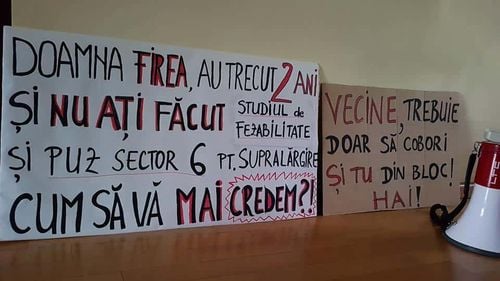 DOAMNA FIREA, AU TRECUT 2 ANI
ȘI NU AȚI FĂCUT STUDIUL de
FEZABILITATE
ȘI PUZ SECTOR 6 PT. SUPRALĂRGIRE
CUM SĂ VĂ MAI CREDEM?!
VECINE, TREBUIE
DOAR SĂ COBORI
ȘI TU DIN BLOC!
HAI!